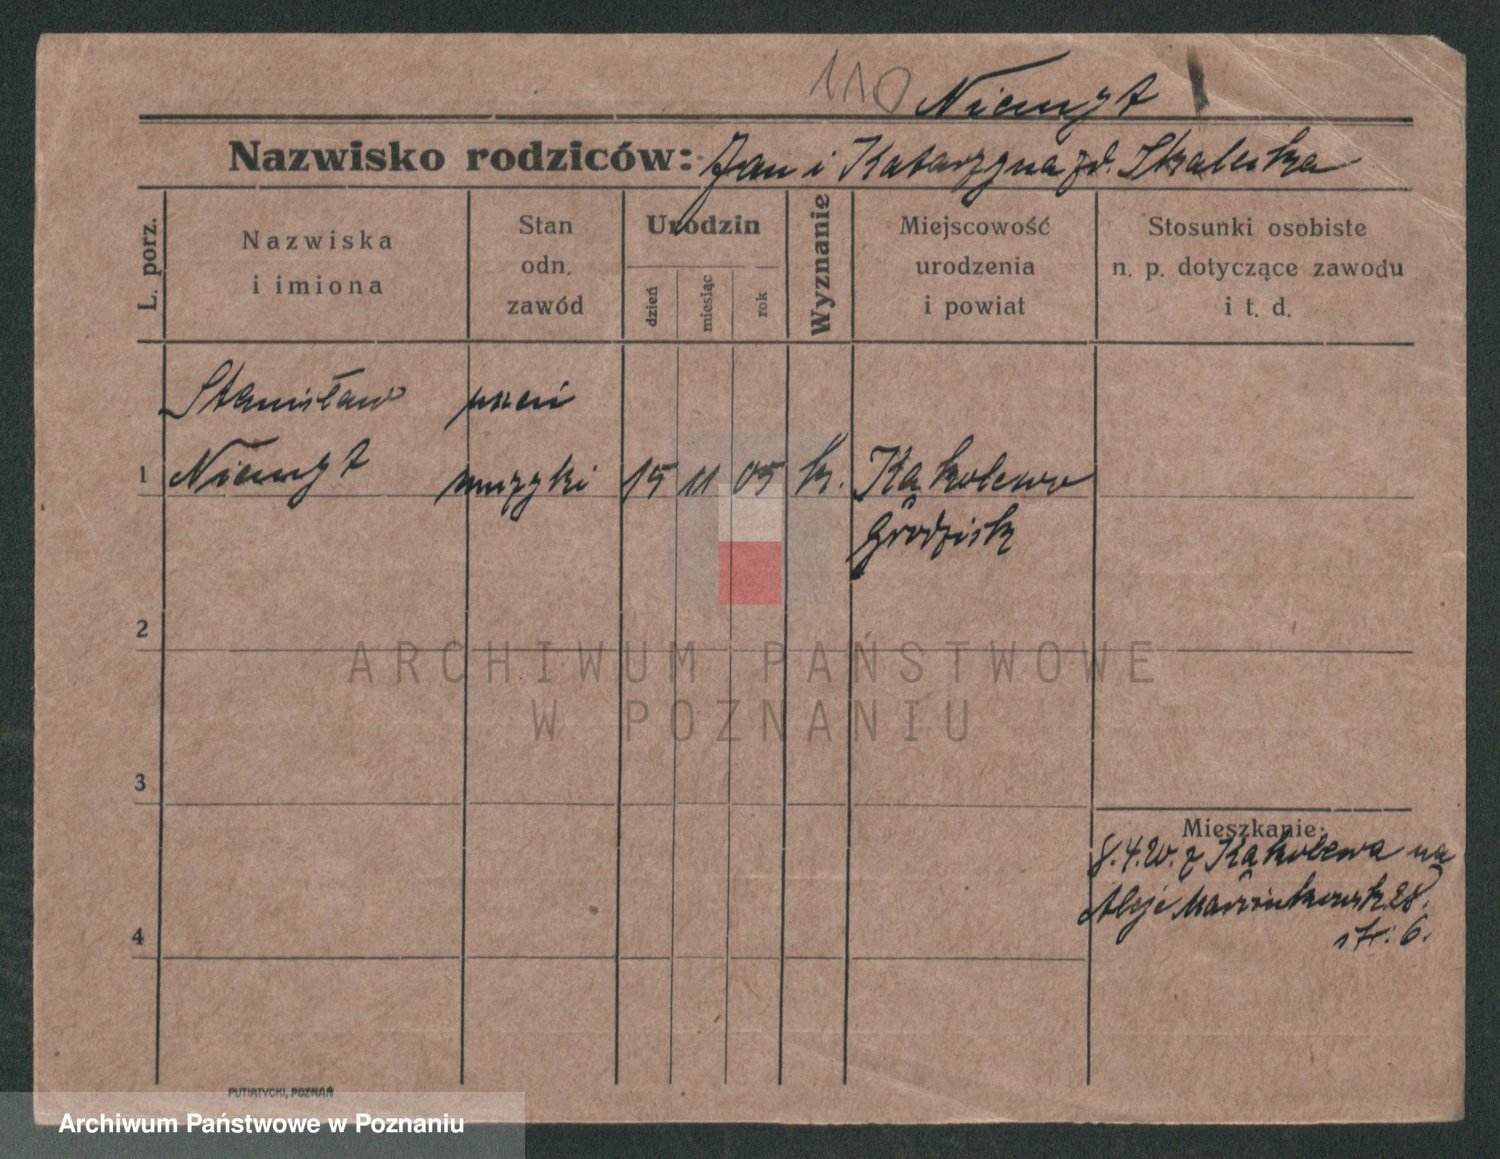 110
Nazwisko rodziców: Jan i Katarzyna zd.
L. porz.
Nazwiska
i imiona
Stan
odn.
zawód
Urodzin
dzień
miesiąc
rok
Wyznanie
Miejscowość
urodzenia
i powiat
Stosunki osobiste
n. p. dotyczące zawodu
i t. d.
Stanisław uczeń
1 muzyki 15 11 05 k. Kąkolewo
Grodzisk
2
ARCHIWUM PAŃSTWOWE
W POZNANIU
3
Mieszkanie:
8.4.20. z Kąkolewa na
Aleje Marcinkowsk. 28.
4
6.
PUTIATYCKI, POZNAŃ
Archiwum Państwowe w Poznaniu